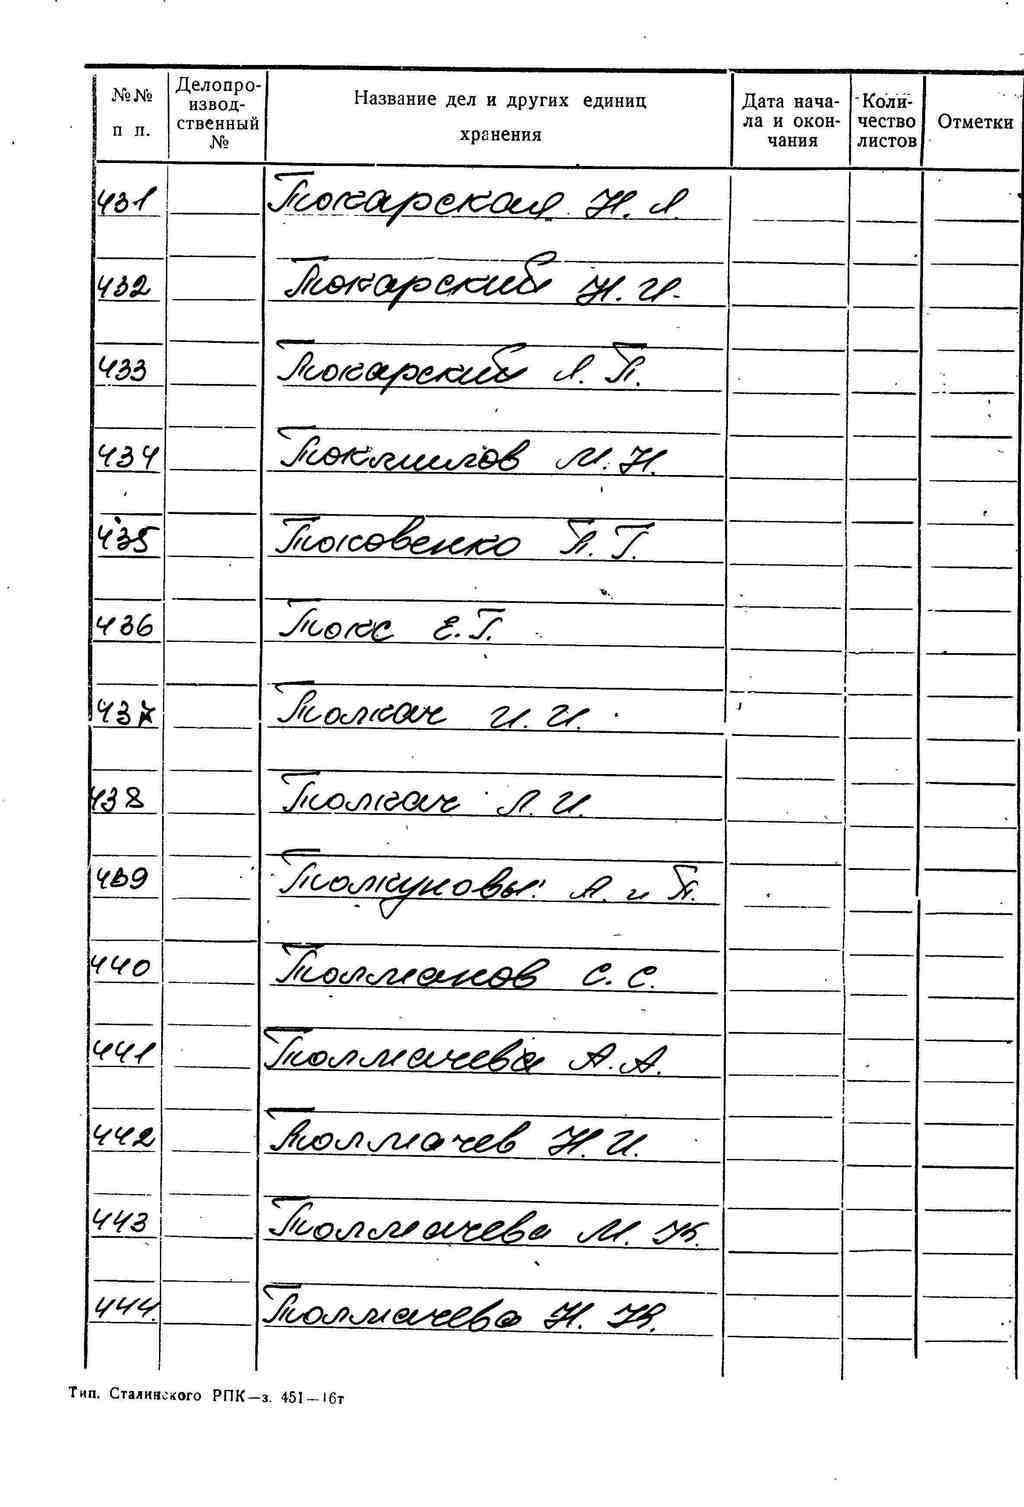 №№ п п.
Делопроизводственный №
Название дел и других единиц хранения
Дата начала и окончания
Количество листов
Отметки
431 Токарская Н. Л.
432 Токарский Н. И.
433 Токарский Л. П.
434 М. Н.
435 Токовенко П. Г.
436 Токс Е. Г.
437 Толкач И. И.
438 Толкач Л. И.
439 Толкуновы: А. и П.
440 Толманов С. С.
441 Толмачева А. А.
442 Толмачев Н. И.
443 Толмачева М. К.
444. Толмачева Н. К.
Тип. Сталинского РПК—з. 451—16т